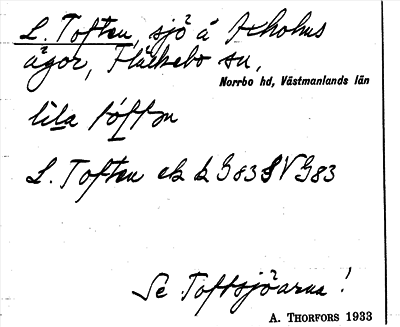 L. Toften, sjö å
ägor, Fläckebo sn,
Norrbo hd, Västmanlands län
lilla tófton
L. Toften ek k G83 S V G83
Se Toftsjöarna!
A. THORFORS 1933